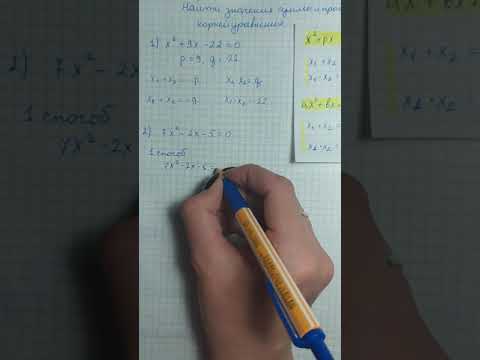 Найти значения суммы и про
корней уравнения
1) x² + 9x - 22 = 0
p = 9, q = -22
x₁ + x₂ = -p x₁ · x₂ = q
x₁ + x₂ = -9 x₁ · x₂ = -22
2) 7x² - 2x - 5 = 0
1 способ
7x² - 2x - 5 =
x² + px
x₁ + x₂ =
x₁ · x₂ =
ax² + bx
x₁ + x₂ =
x₁ · x₂ =
2) 7x² - 2x
1 способ
7x² - 2x